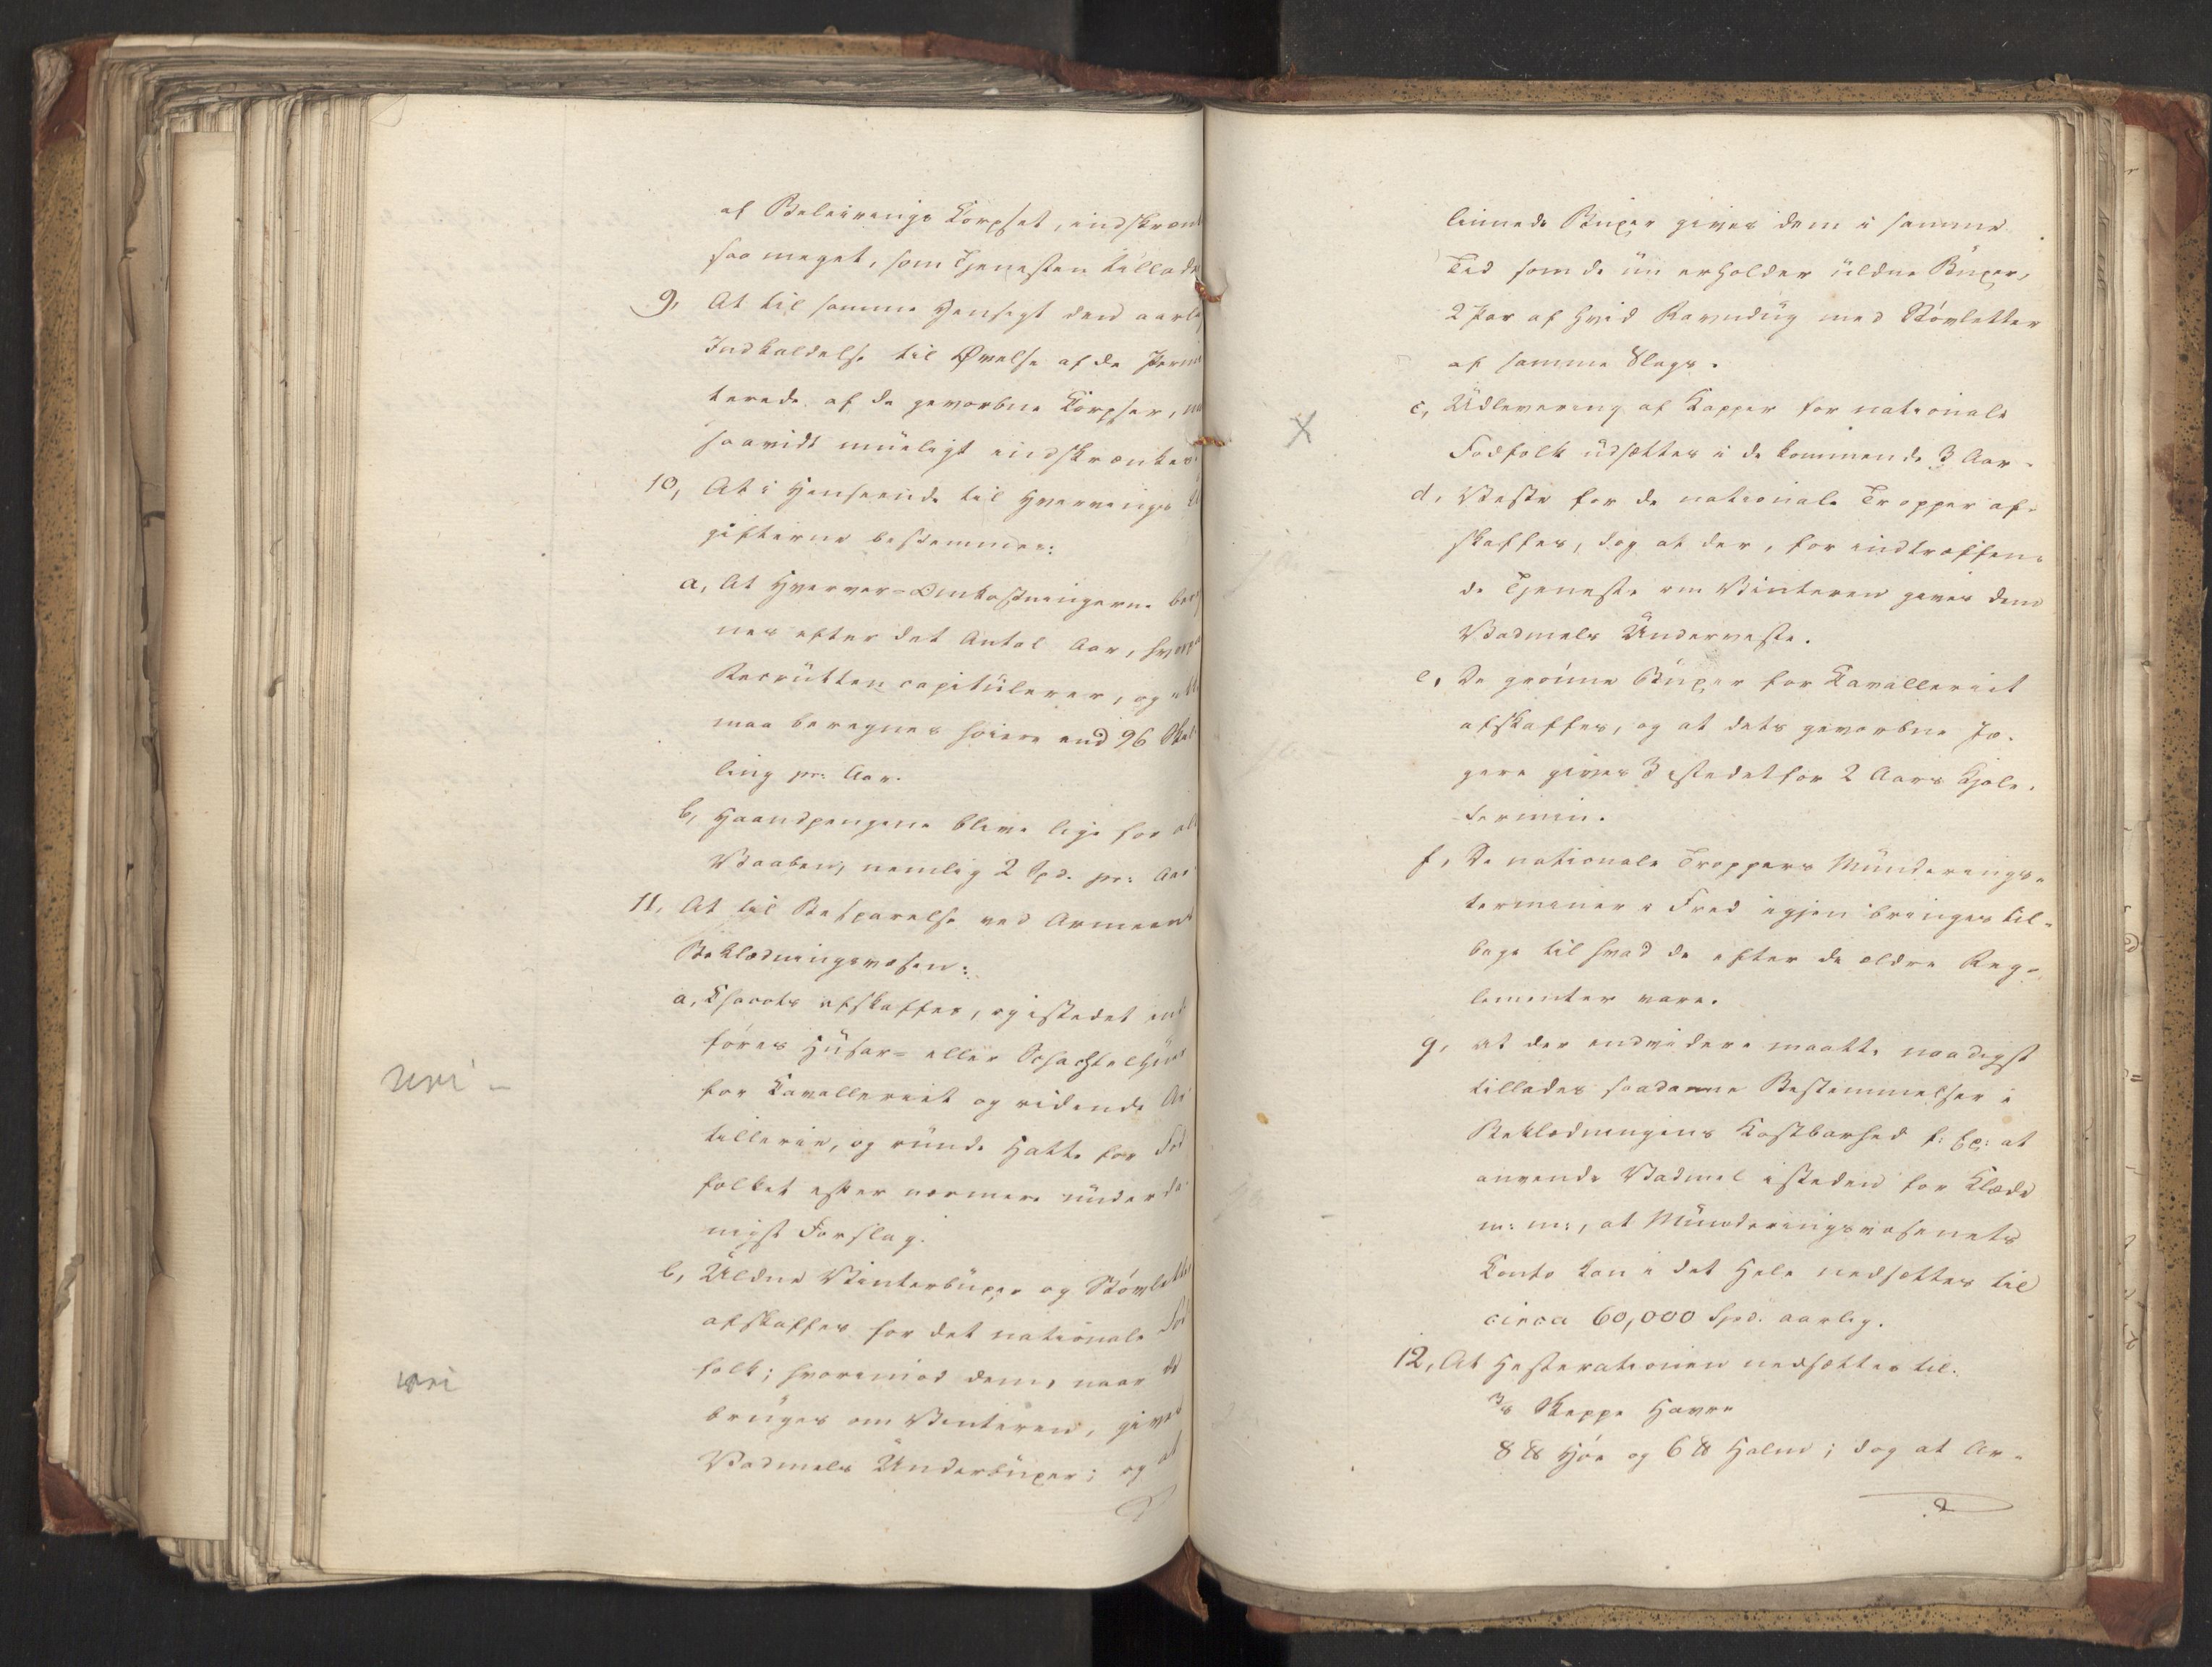 af Beleirings Corpset, indskrænk
saa meget, som Tjenesten tillade
9, At til samme Hensigt den aarli
Indkaldelse til Øvelse af de Permi
terede af de gevorbne Corpser, m
saavidt mueligt indskrænkes.
10, At i Henseende til Hvervings U
gifterne bestemmes:
a, At Hverver-Omkostningerne be
nes efter det Antal Aar, hvorpaa
Recrütten capitülerer, og ei
maa beregnes høiere end 96 Skil
ling pr: Aar.
b, Haandpengene blive lige for all
Vaaben, nemlig 2 Spd. pr: Aar
11, At til Besparelse ved Armeens
Beklædningsvæsen:
a, Chacots afskaffes, og istedet ind
føres Hüsar- eller Schachtelhüer
for Cavalleriet og ridende Ar
tillerie, og ründe Hatte for Fod
folket efter nærmere ünderda
nigst Forslag.
b, Üldne Vinterbüxer og Støvlette
afskaffes for det nationale Fod
folk; hvorimod dem, naar de
brüges om Vinteren, gives
Vadmels Ünderbüxer; og at
linnede Büxer gives dem i samme
Tid som de nü erholder üldne Büxer,
2 Par af hvid Ravndüg med Støvletter
af samme Slags.
c, Üdlevering af Capper for nationale
Fodfolk üdsættes i de kommende 3 Aar.
d, Veste for de nationale Tropper af-
skaffes, dog at der, for indtræffen-
de Tjeneste om Vinteren gives dem
Vadmels Ünderveste.
e, De grønne Büxer for Cavalleriet
afskaffes, og at dets gevorbne Jæ-
gere gives 3 istedetfor 2 Aars Kjole-
termin.
f, De nationale Troppers Münderings-
terminer i Fred igjen bringes til-
bage til hvad de efter de ældre Reg-
lementer vare.
g, at der endvidere maatte naadigst
tillades saadanne Bestemmelser i
Beklædningens Kostbarhed f: Ex: at
anvende Vadmel isteden for Klæde
m: m:, at Münderingsvæsenets
Conto kan i det Hele nedsættes til
circa 60,000 Spd. aarlig.
12, At Hesterationen nedsættes til:
3/8 Skeppe Havre
8 ℔ Høe og 6 ℔ Halm; dog at Ar-